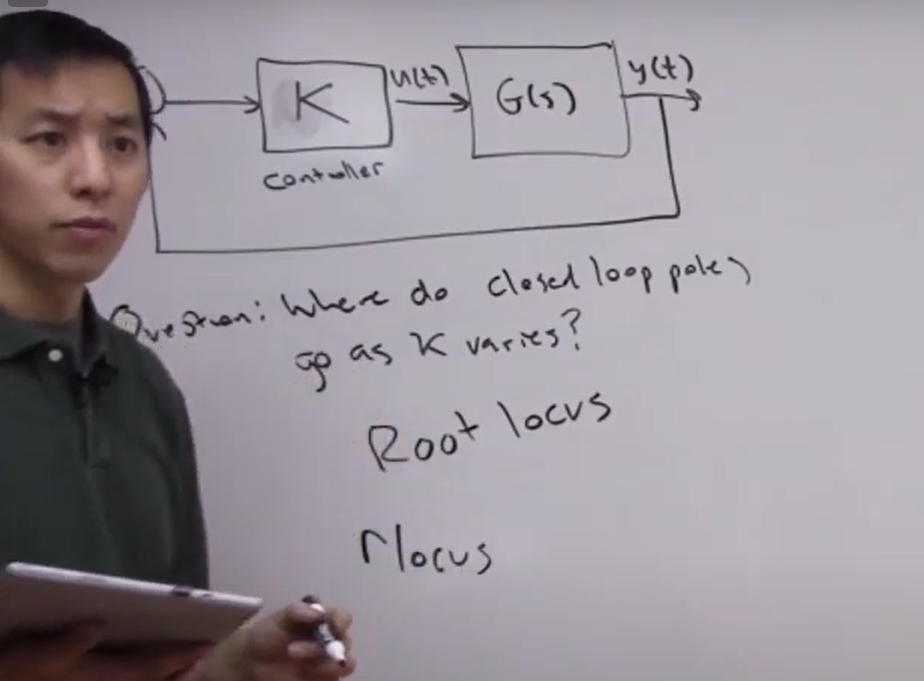 K
u(t)
G(s)
y(t)
controller
Question: Where do closed loop poles
go as K varies?
Root locus
rlocus